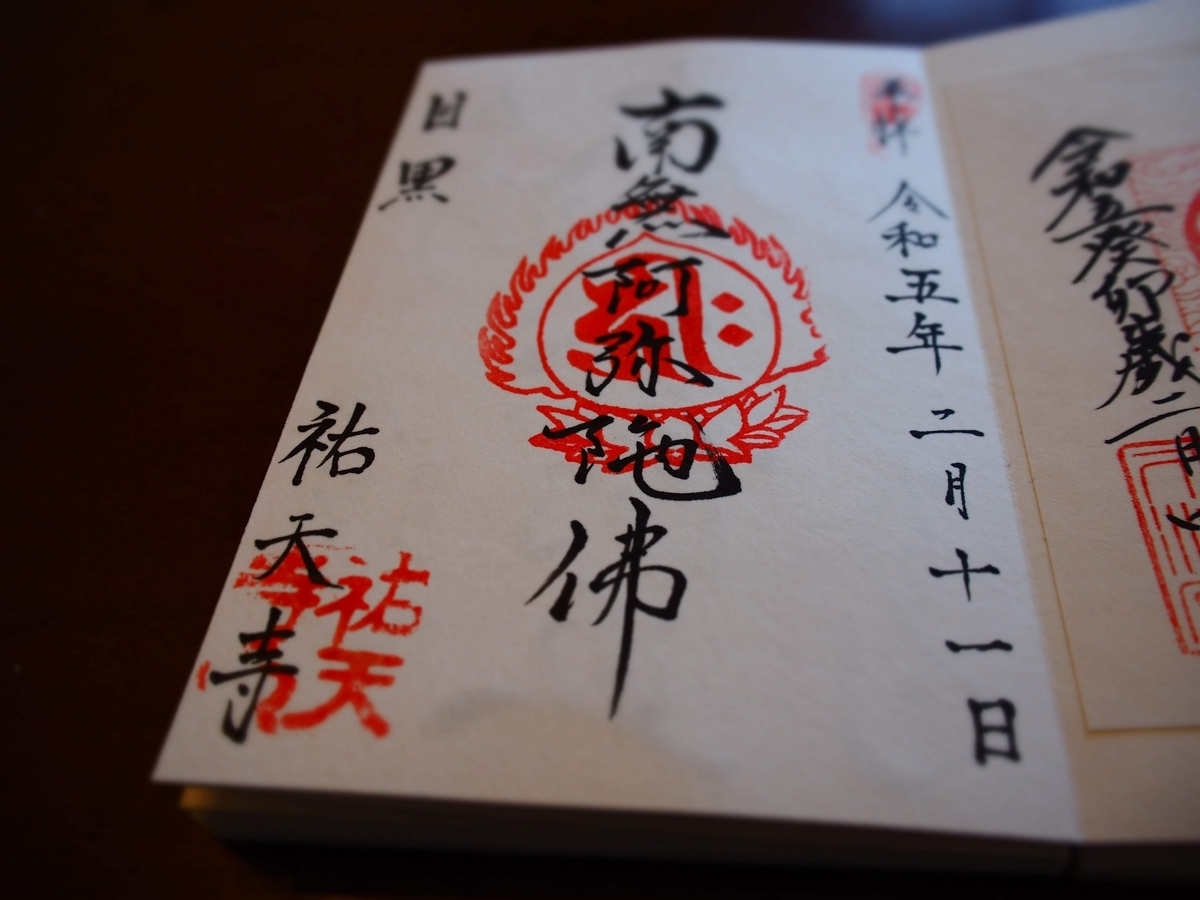 令和五癸卯歳
二月
奉拝 令和五年 二月 十一日
南無阿弥陀佛
目黒 祐天寺
祐天寺